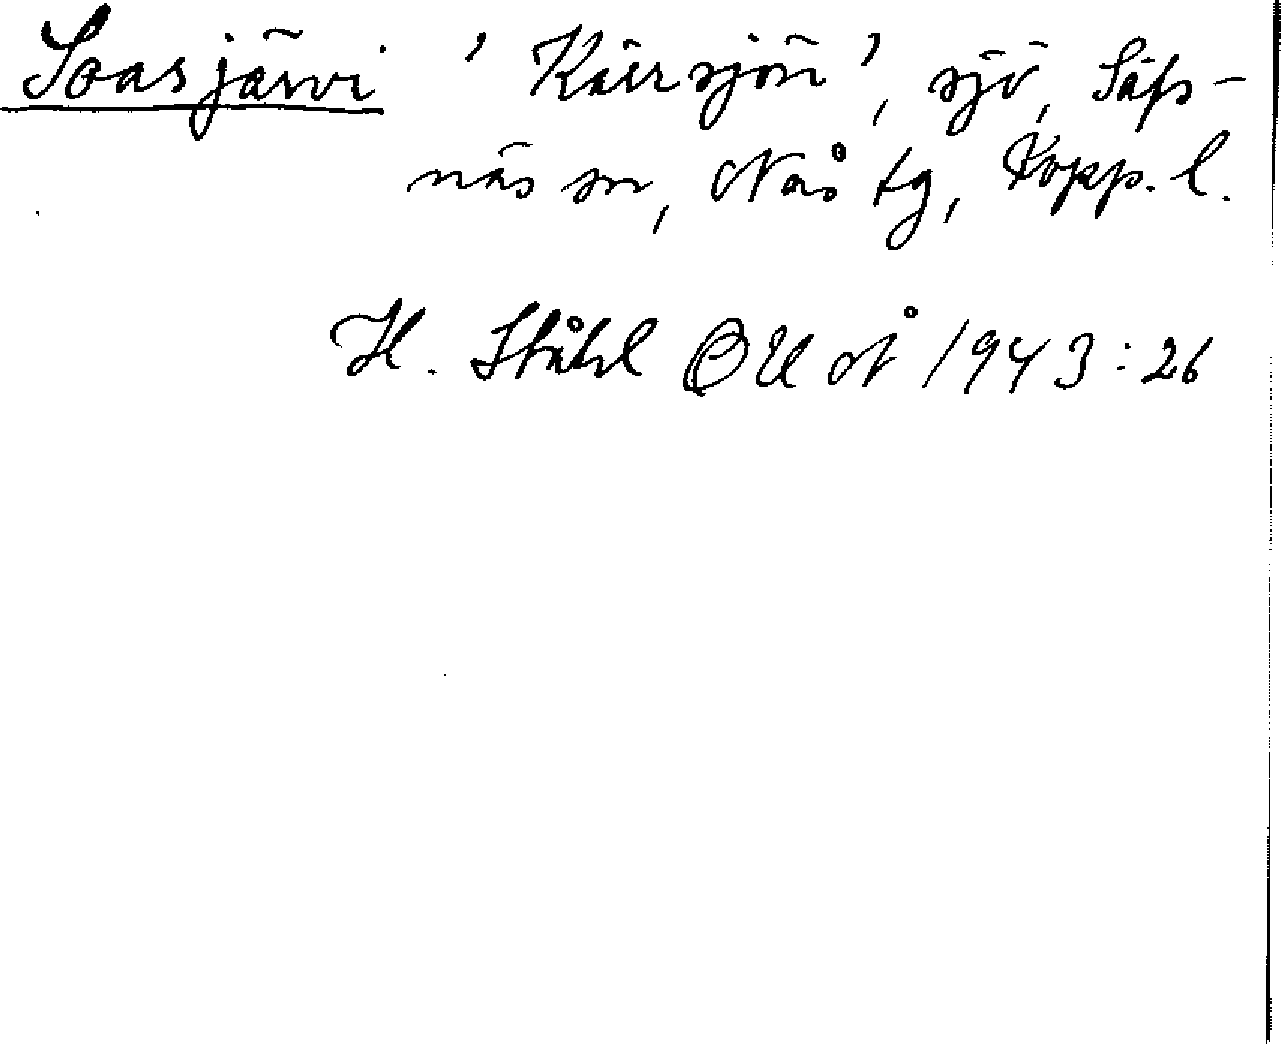 Soasjärvi 'Kärrsjön', sjö, Säfs-
näs sn, Nås tg, Kopp. l.
H. Ståhl OUÅ 1943:26